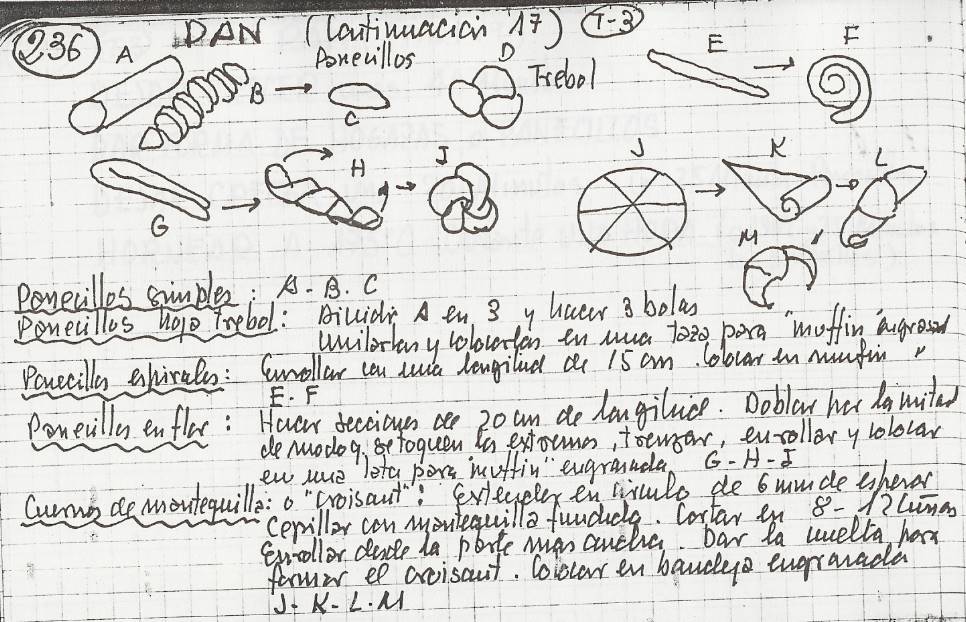 236 PAN (Continuación 17) T-3
Panecillos
A B C D Trebol E F
G H I J K L M
Panecillos simples: A-B.C
Panecillos hoja trebol: Dividir A en 3 y hacer 3 bolas
Untarlas y colocarlas en una taza para "muffin" engrasad
Panecillos espirales: Enrollar con una longitud de 15 cm. Colocar en muffin "
E.F
Panecillos en flor: Hacer secciones de 20 cm de longitud. Doblar por la mitad
de modo q. se toquen los extremos, trenzar, enrollar y colocar
en una lata para "muffin" engrasada G-H-I
Cuernos de mantequilla: o "Croisant": Extender en circulo de 6 mm de espesor
Cepillar con mantequilla fundida. Cortar en 8-12 cuñas
Enrollar desde la parte mas ancha. Dar la vuelta para
formar el croisant. Colocar en bandeja engrasada
J-K-L.M